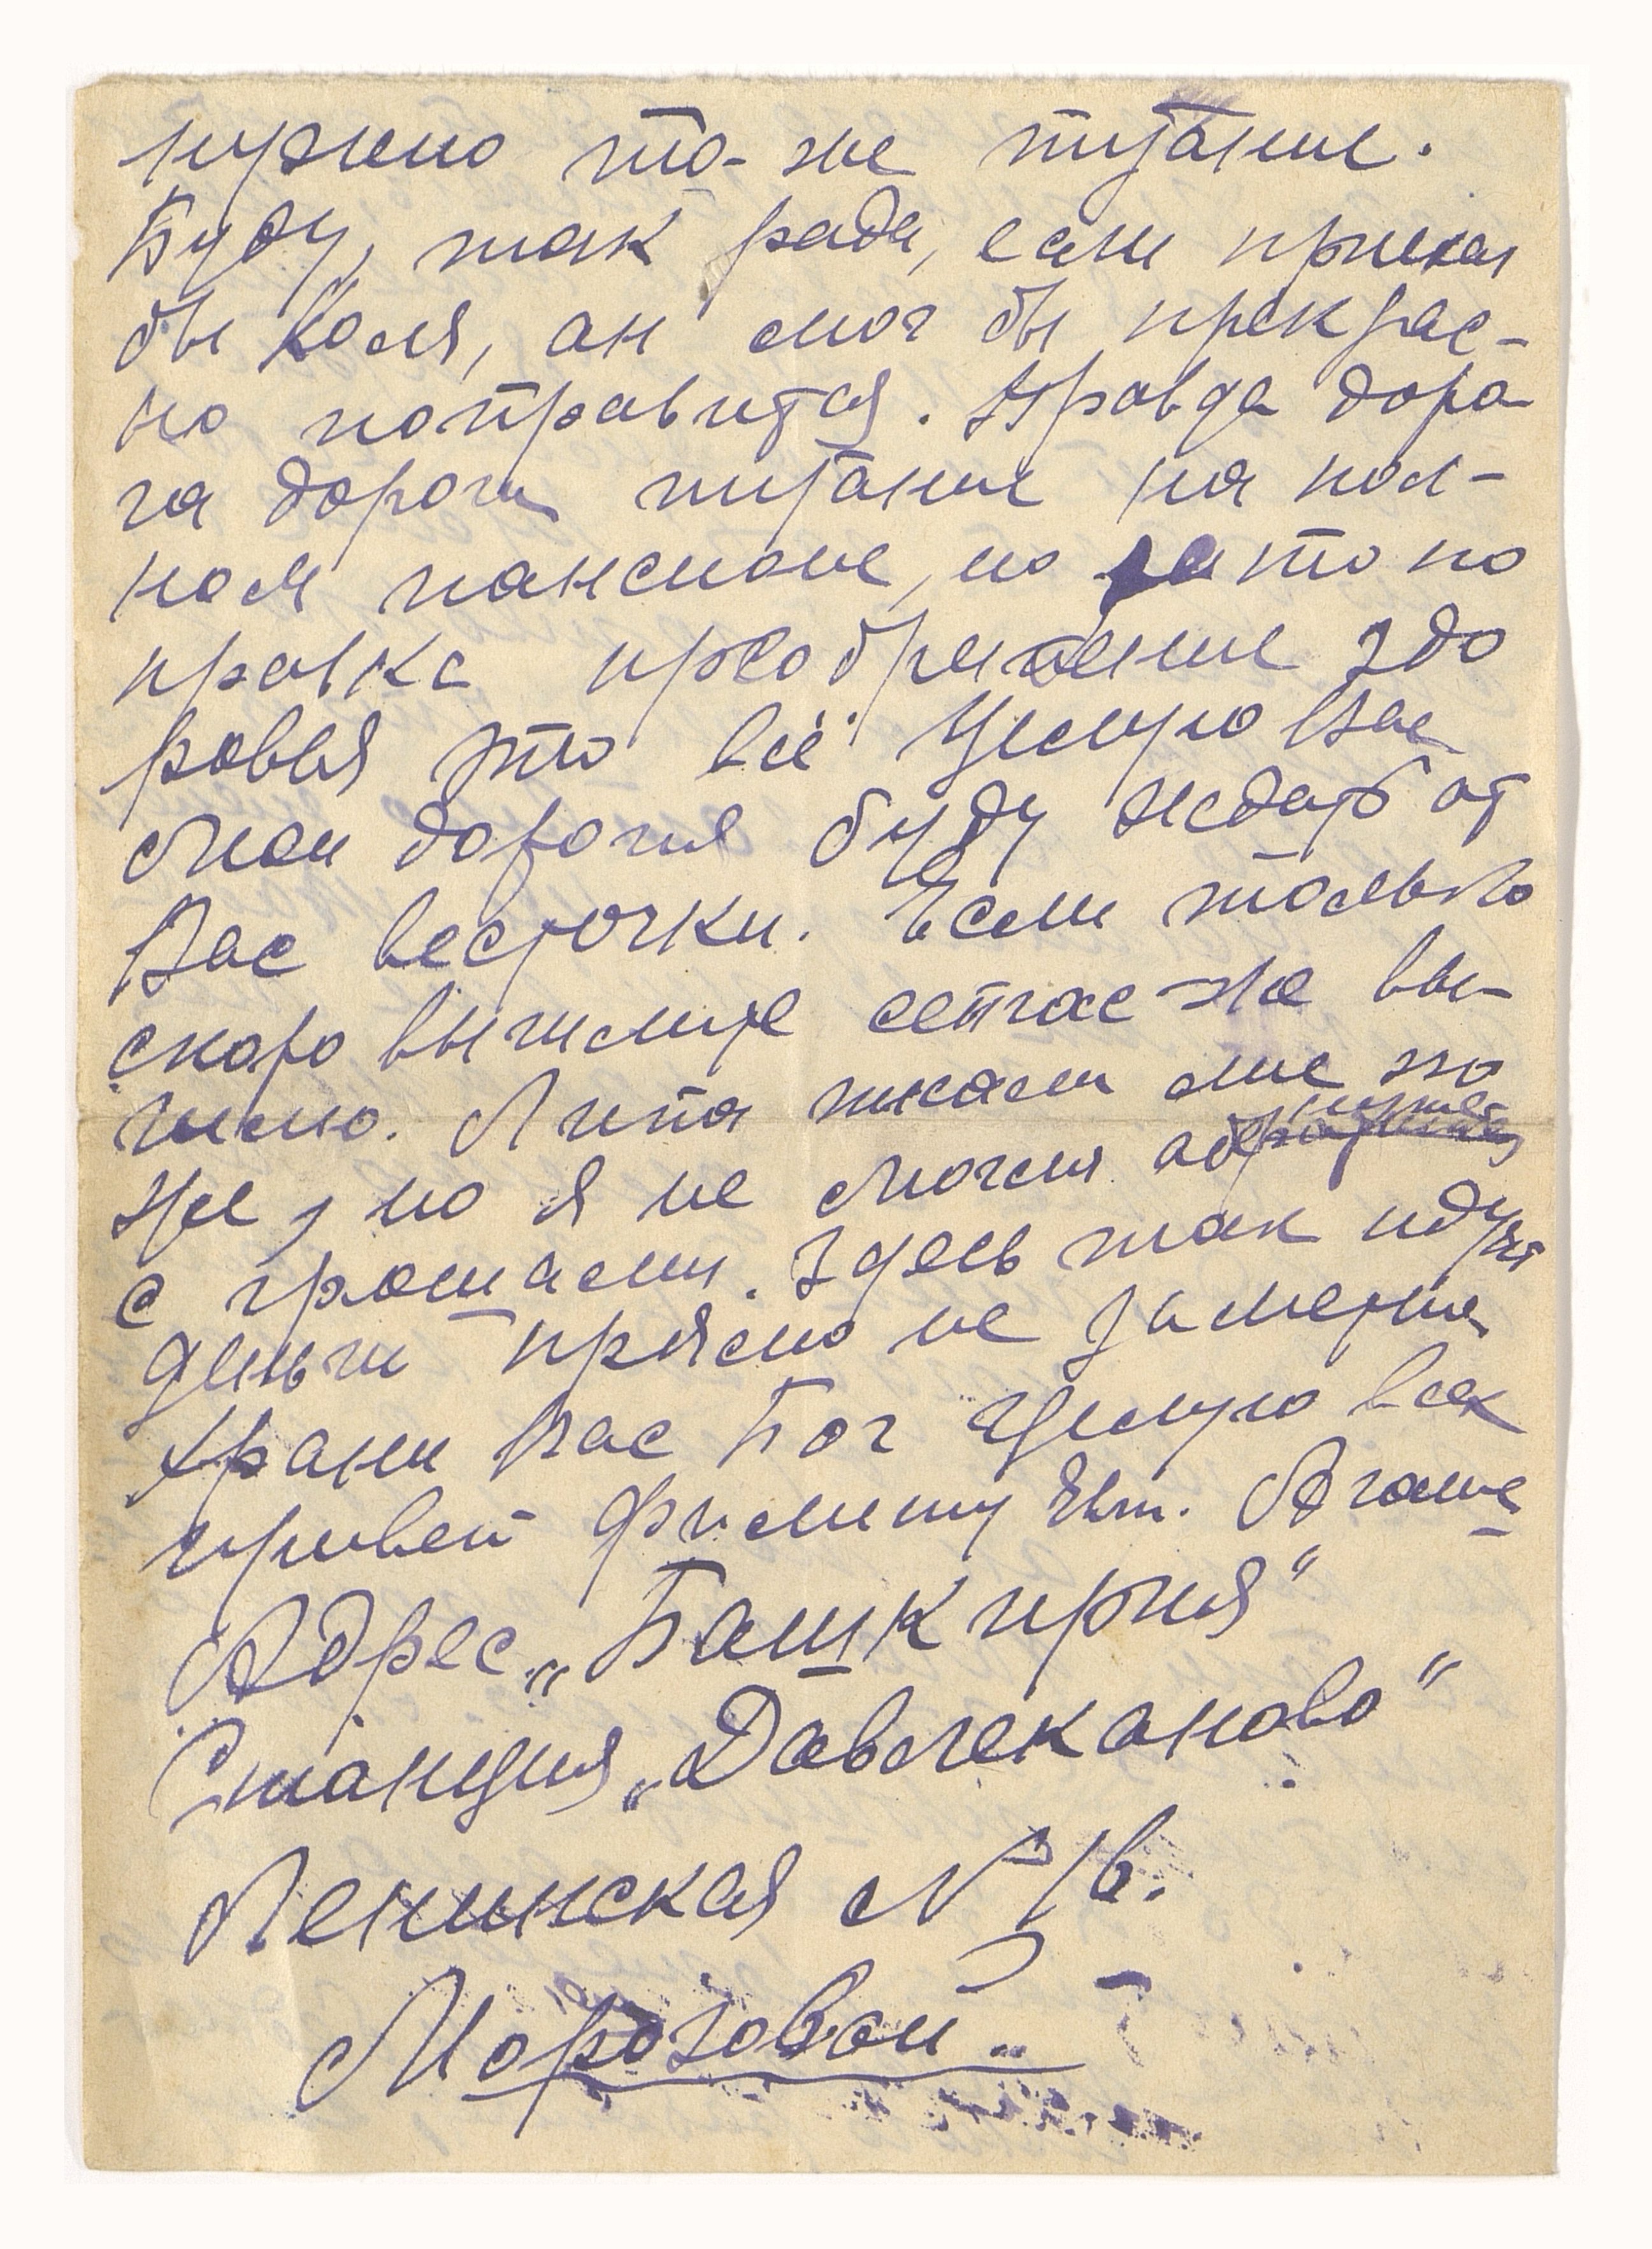 нужно то-же питание.
Буду, так рада, если приехал
бы Коля, он мог бы прекрас-
но поправится. Правда доро
га дорогая питание на пол-
ном пансионе, но зато по
правка преобретение здо
ровья это всё. Целую Вас
мои дорогия буду ждать от
Вас весточки. Если только
скоро вышлите сейчас-же вы-
шлю. Липа писали мне по
же, но я не могла
с грошами. Здесь так идут
деньги прямо не заметно
Храни вас Бог целую всех
привет Филиппу Евт. Агаше
Адрес „Башкирия"
Станция „Давлеканово"
Ленинская N 16.
Морозовой